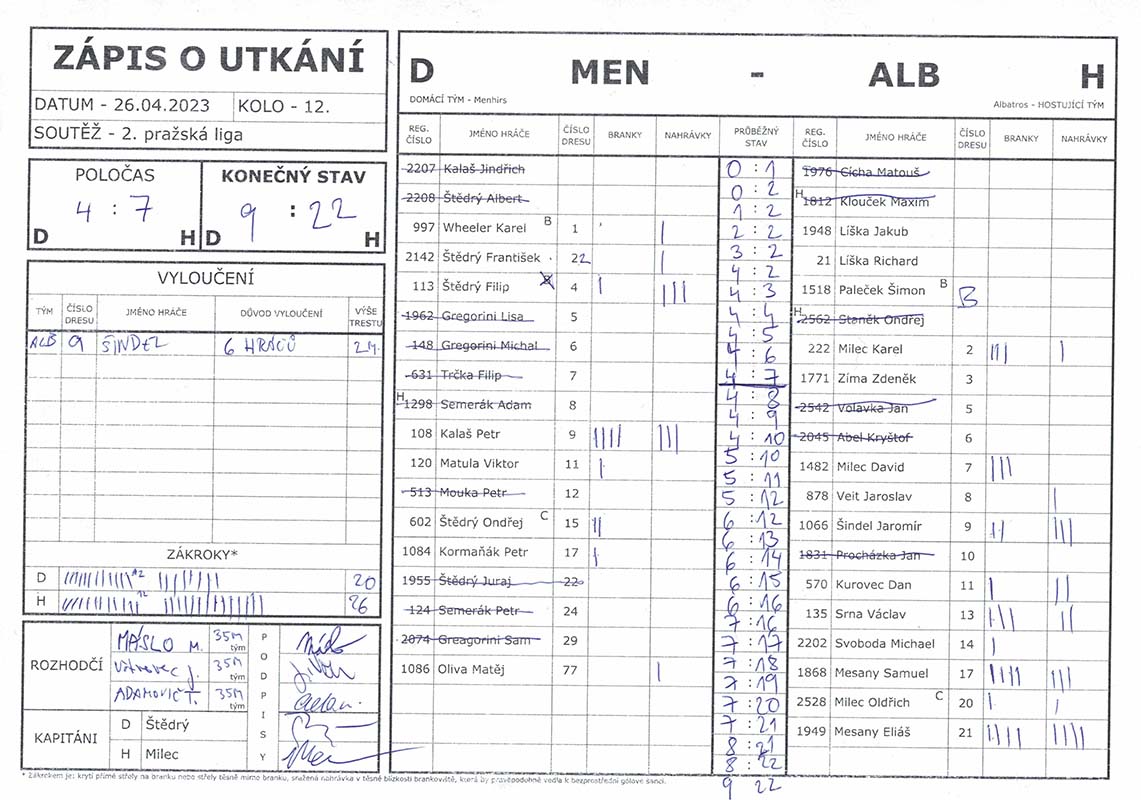 ZÁPIS O UTKÁNÍ
DATUM - 26.04.2023 KOLO - 12.
SOUTĚŽ - 2. pražská liga
POLOČAS KONEČNÝ STAV
4 : 7 9 : 22
D H D H
VYLOUČENÍ
TÝM ČÍSLO DRESU JMÉNO HRÁČE DŮVOD VYLOUČENÍ VÝŠE TRESTU
ALB 9 ŠINDEL 6 HRÁČŮ
ZÁKROKY*
D 12 20
H 12 26
ROZHODČÍ MÁSLO M. 35M tým PODPISY
35M tým
ADAMOVIČ T. 35M tým
KAPITÁNI D Štědrý
H Milec
D MEN - ALB H
DOMÁCÍ TÝM - Menhirs Albatros - HOSTUJÍCÍ TÝM
REG. ČÍSLO JMÉNO HRÁČE ČÍSLO DRESU BRANKY NAHRÁVKY PRŮBĚŽNÝ STAV REG. ČÍSLO JMÉNO HRÁČE ČÍSLO DRESU BRANKY NAHRÁVKY
2207 Kalaš Jindřich
2208 Štědrý Albert
997 Wheeler Karel B 1
2142 Štědrý František 22
113 Štědrý Filip 4
1962 Gregorini Lisa 5
148 Gregorini Michal 6
631 Trčka Filip 7
H 1298 Semerák Adam 8
108 Kalaš Petr 9
120 Matula Viktor 11
513 Mouka Petr 12
602 Štědrý Ondřej C 15
1084 Kormaňák Petr 17
1955 Štědrý Juraj 22
124 Semerák Petr 24
2074 Greagorini Sam 29
1086 Oliva Matěj 77
0 : 1
0 : 2
1 : 2
2 : 2
3 : 2
4 : 2
4 : 3
4 : 4
4 : 5
4 : 6
4 : 7
4 : 8
4 : 9
4 : 10
5 : 10
5 : 11
5 : 12
6 : 12
6 : 13
6 : 14
6 : 15
6 : 16
7 : 16
7 : 17
7 : 18
7 : 19
7 : 20
7 : 21
8 : 21
8 : 22
9 22
1976 Cícha Matouš
H 1812 Klouček Maxim
1948 Líška Jakub
21 Líška Richard
1518 Paleček Šimon B B
H 2562 Staněk Ondřej
222 Milec Karel 2
1771 Zíma Zdeněk 3
2542 Volavka Jan 5
2045 Abel Kryštof 6
1482 Milec David 7
878 Veit Jaroslav 8
1066 Šindel Jaromír 9
1831 Procházka Jan 10
570 Kurovec Dan 11
135 Srna Václav 13
2202 Svoboda Michael 14
1868 Mesany Samuel 17
2528 Milec Oldřich C 20
1949 Mesany Eliáš 21
* Zákrokem je: krytí přímé střely na branku nebo střely těsně mimo branku, sražená nahrávka v těsné blízkosti brankoviště, která by pravděpodobně vedla k bezprostřední gólové šanci.